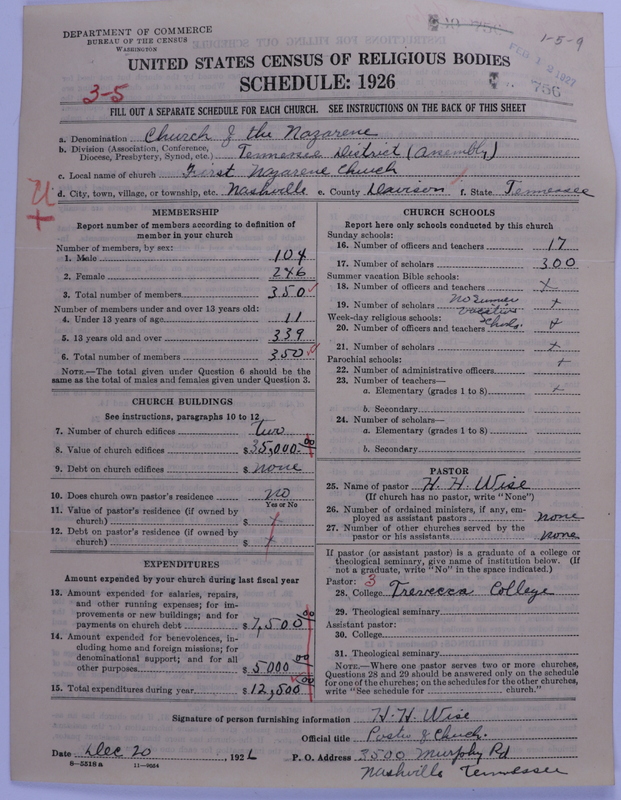 DEPARTMENT OF COMMERCE
BUREAU OF THE CENSUS
WASHINGTON
1-5-9
FEB 12 1927
756
UNITED STATES CENSUS OF RELIGIOUS BODIES
SCHEDULE: 1926
3-5
FILL OUT A SEPARATE SCHEDULE FOR EACH CHURCH. SEE INSTRUCTIONS ON THE BACK OF THIS SHEET
a. Denomination Church of the Nazarene
b. Division (Association, Conference, Diocese, Presbytery, Synod, etc.) Tennessee District (Assembly)
c. Local name of church First Nazarene Church
d. City, town, village, or township, etc. Nashville e. County Davison f. State Tennessee
MEMBERSHIP
Report number of members according to definition of
member in your church
Number of members, by sex:
1. Male 104
2. Female 246
3. Total number of members 350
Number of members under and over 13 years old:
4. Under 13 years of age 11
5. 13 years old and over 339
6. Total number of members 350
NOTE.—The total given under Question 6 should be
same as the total of males and females given under Question 3.
CHURCH BUILDINGS
See instructions, paragraphs 10 to 12
7. Number of church edifices two
8. Value of church edifices $35,000.00
9. Debt on church edifices $ none
10. Does church own pastor's residence no
Yes or No
11. Value of pastor's residence (if owned by
church) $ +
12. Debt on pastor's residence (if owned by
church) $ +
EXPENDITURES
Amount expended by your church during last fiscal year
13. Amount expended for salaries, repairs,
and other running expenses; for im-
provements or new buildings; and for
payments on church debt $7,500.00
14. Amount expended for benevolences, in-
cluding home and foreign missions; for
denominational support; and for all
other purposes $5000.00
15. Total expenditures during year $12,500.00
CHURCH SCHOOLS
Report here only schools conducted by this church
Sunday schools:
16. Number of officers and teachers 17
17. Number of scholars 300
Summer vacation Bible schools:
18. Number of officers and teachers +
19. Number of scholars no summer vacation schools. +
Week-day religious schools:
20. Number of officers and teachers +
21. Number of scholars +
Parochial schools:
22. Number of administrative officers +
23. Number of teachers—
a. Elementary (grades 1 to 8) +
b. Secondary
24. Number of scholars—
a. Elementary (grades 1 to 8)
b. Secondary
PASTOR
25. Name of pastor H. H. Wise
(If church has no pastor, write "None")
26. Number of ordained ministers, if any, em-
ployed as assistant pastors none
27. Number of other churches served by the
pastor or his assistants none
If pastor (or assistant pastor) is a graduate of a college or
theological seminary, give name of institution below. (If
not a graduate, write "No" in the space indicated.)
Pastor: 3
28. College Trevecca College
29. Theological seminary
Assistant pastor:
30. College
31. Theological seminary
NOTE.—Where one pastor serves two or more churches,
Questions 28 and 29 should be answered only on the schedule
for one of the churches; on the schedules for the other churches,
write "See schedule for church."
Signature of person furnishing information H. H. Wise
Official title Pastor of Church.
Date Dec 20, 1926 P. O. Address 3500 Murphy Rd
Nashville Tennessee
8-5518 a 11-9054